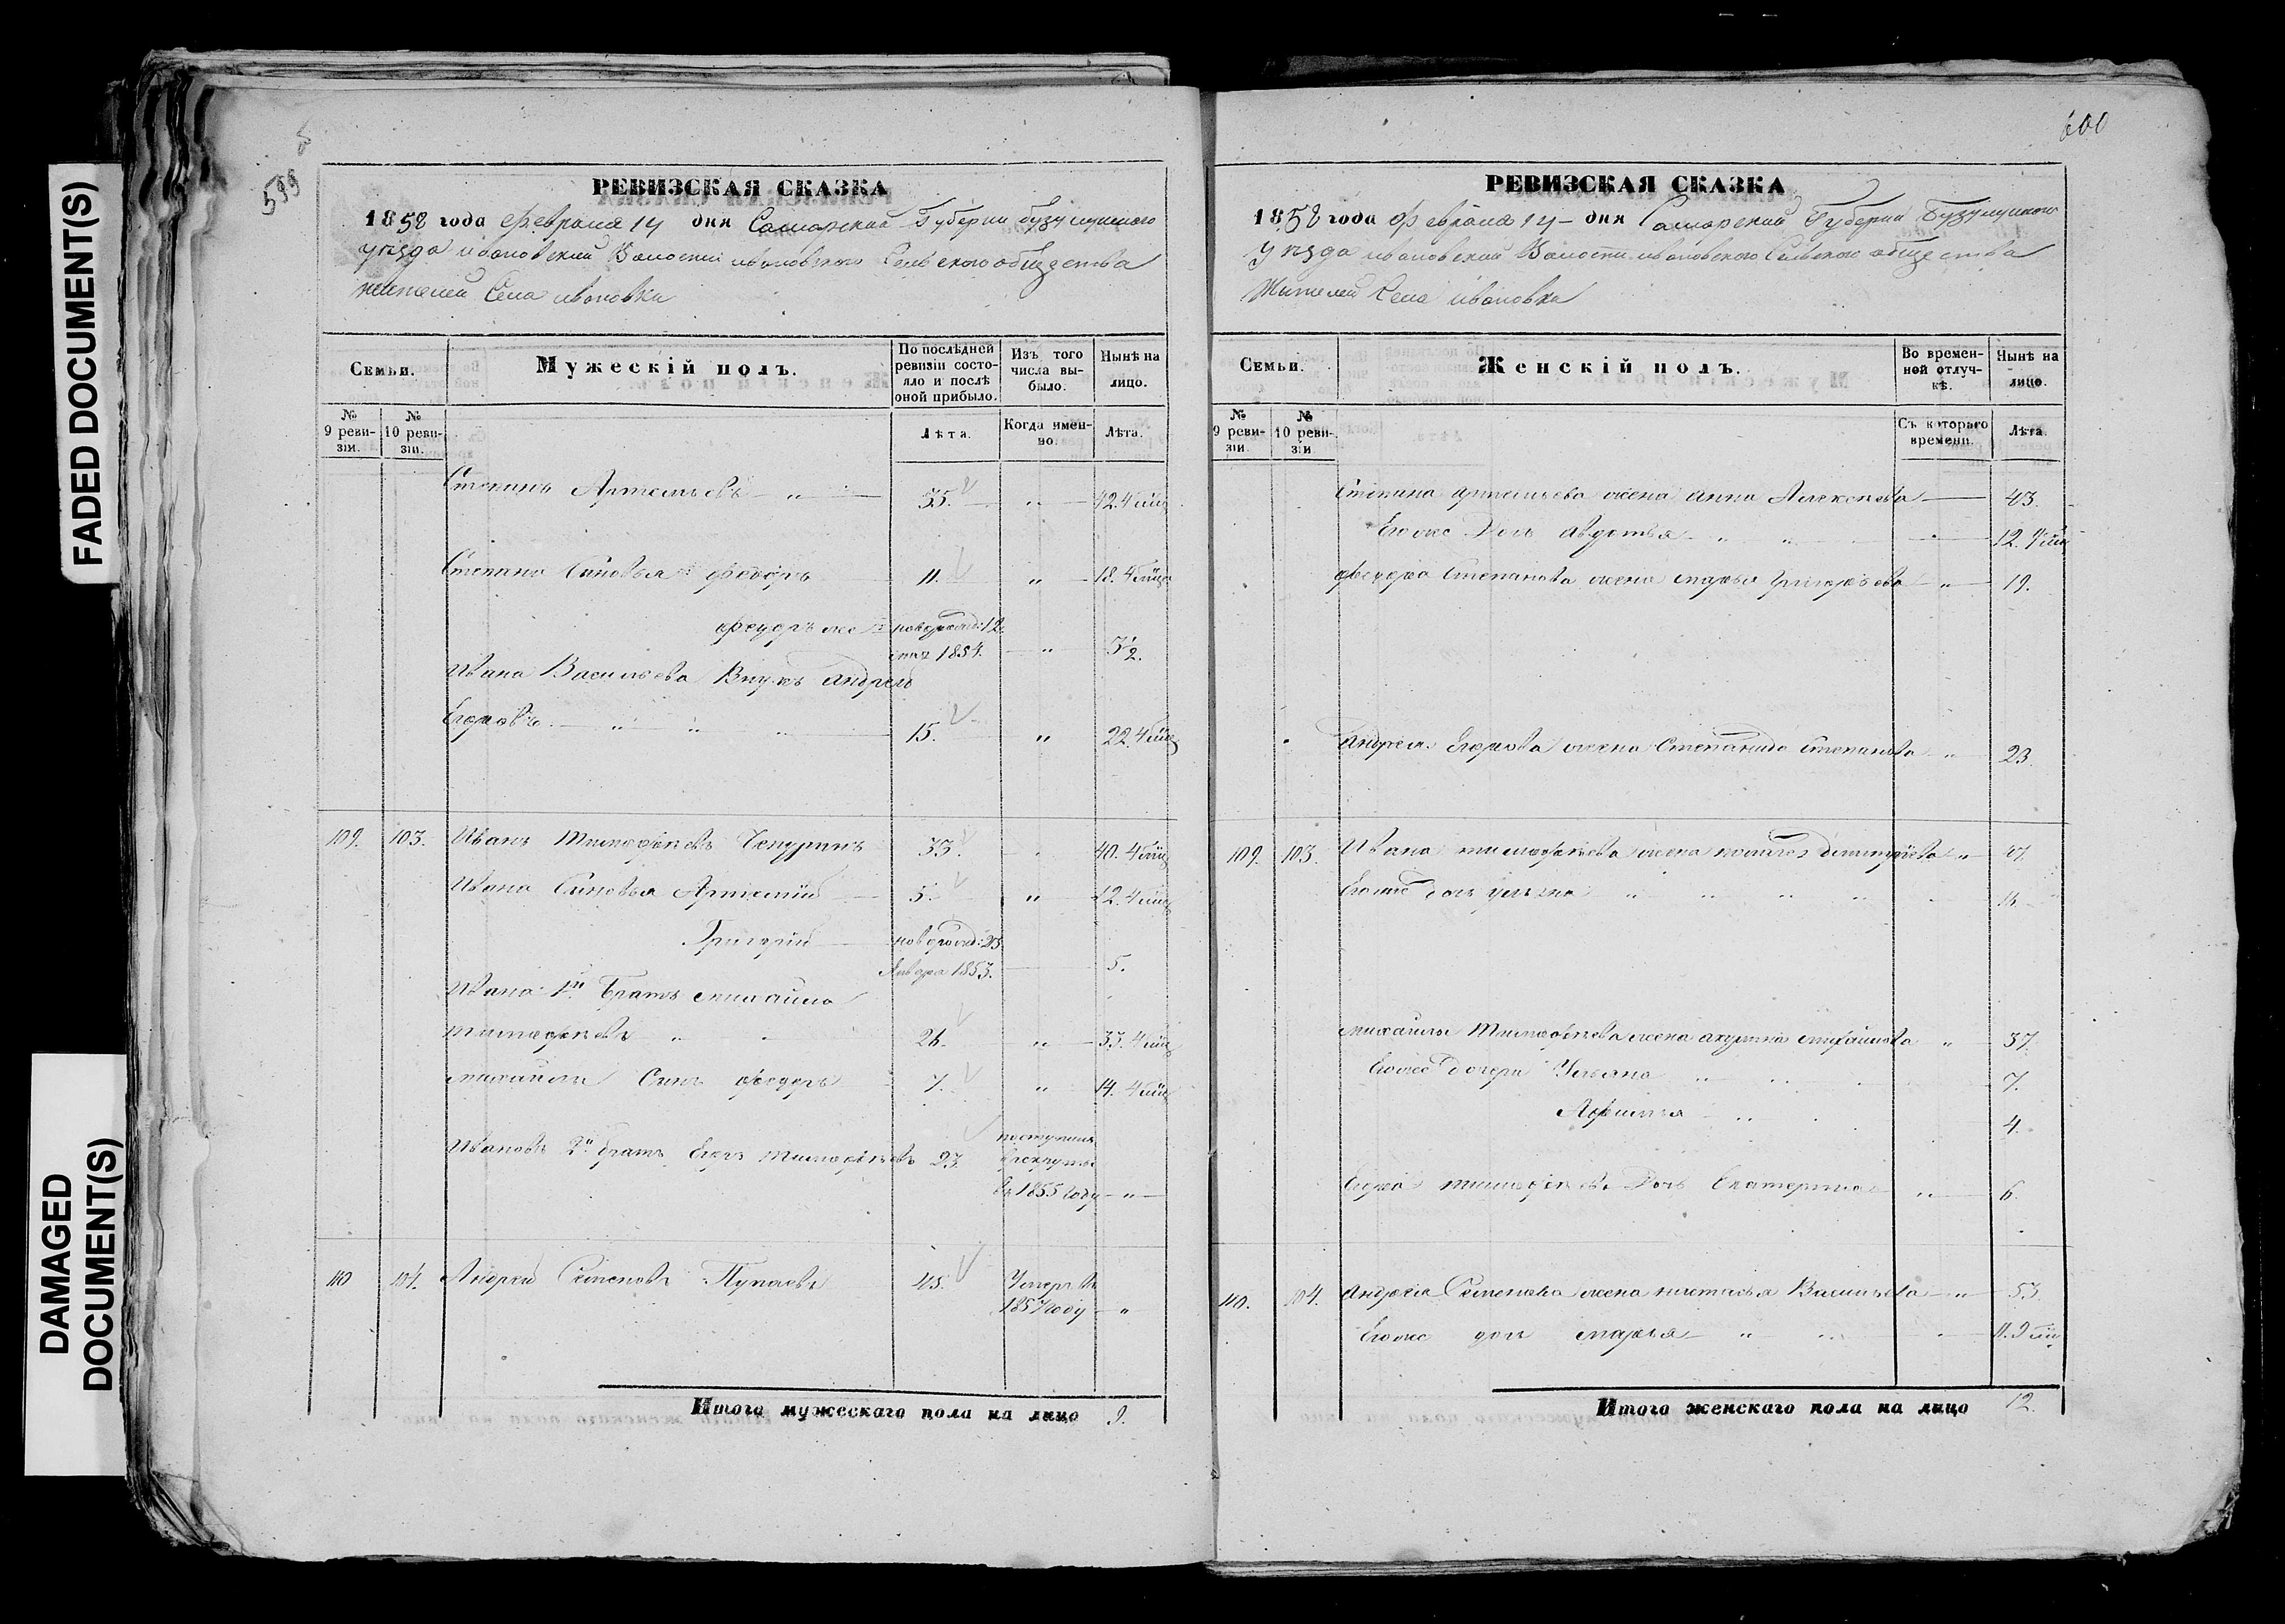 FADED DOCUMENT(S)
DAMAGED
DOCUMENT(S)
599
РЕВИЗСКАЯ СКАЗКА
1858 года Февраля 14 дня Самарской Губерни бузулуцкого
уезда ивановской Волости ивановского Сельского общества
жителей Села ивановки
Семьи.
Мужескій полъ.
По послѣдней ревизіи состояло и послѣ оной прибыло.
Изъ того числа выбыло.
Нынѣ на лицо.
№ 9 ревизіи.
№ 10 ревизіи.
Лѣта.
Когда именно.
Лѣта.
Степанъ Артемьевъ 35. 42. 4 мѣц
Степана Сыновья Федоръ 11. 18. 4 мѣц
Федоръ же новорожд: 12
1854. 3½.
Ивана Васильева Внукъ Андрей
Егоровъ 15. 22. 4 мѣц
109. 103. Иванъ Тимофѣевъ Чепуринъ 33. 40. 4 мѣц
Ивана Сыновья Артемій 5. 12. 4 мѣц
Григорій новорожд: 23
Января 1853. 5.
Ивана 1й Братъ михайло
тимофѣевъ 26. 33. 4 мѣц
михайлы Сынъ федоръ 7. 14. 4 мѣц
Ивановъ 2й братъ Егоръ тимофѣевъ 23. поступилъ
врекруты
въ 1855 году
110 104. Андрей Семеновъ 45. Умеръ въ
1857 году
Итого мужескаго пола на лицо 9.
600
РЕВИЗСКАЯ СКАЗКА
1858 года Февраля 14 дня Самарской Губерни Бузулуцкого
Уезда ивановской Волости ивановского Сельского общества
Жителей Села ивановки
Семьи.
Женскій полъ.
Во временной отлучкѣ.
Нынѣ на лицо.
№ 9 ревизіи
№ 10 ревизіи
Съ котораго времени.
Лѣта.
Степана артемьева жена анна Алексеева 43.
Егоже Дочь авдотья 12. 4 мѣц
федора Степанова жена марья григорьева 19.
андрея Егорова жена Степанида Степанова 23.
109. 103. Ивана тимофѣева жена дмитріева
Егоже дочь
михайлы Тимофѣева жена акулина михайлова 37.
Егоже дочери Ульяна 7.
Афимья 4.
Егора тимофѣева Дочь Екатерина 6.
110. 104. Андрея Семенова жена настасья Васильева 53.
Егоже дочь марья 11. 9 мѣц
Итого женскаго пола на лицо 12.